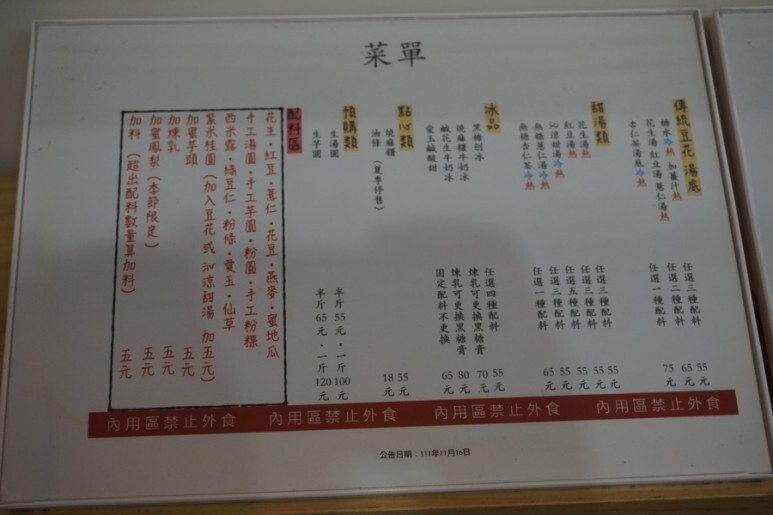 菜單
傳統豆花湯底
糖水冷熱 加薑汁熱 任選三種配料 55 65元
花生湯 紅豆湯 薏仁湯熱 任選二種配料
杏仁茶湯底冷熱 任選一種配料 75元
甜湯類
花生湯熱 任選三種配料 55元
紅豆湯熱 任選三種配料 55元
沁涼甜湯冷熱 任選五種配料 55元
無糖薏仁湯冷熱 任選三種配料 55元
無糖杏仁茶冷熱 任選一種配料 65元
冰品
黑糖刨冰 任選四種配料 55元
燒麻糬牛奶冰 煉乳可更換黑糖膏 70元
鹹花生牛奶冰 煉乳可更換黑糖膏 80元
愛玉鹹酸甜 固定配料不更換 65元
點心類
燒麻糬 55元
油條(夏季停售) 18元
預購類
生湯圓 半斤55元・一斤100元
生芋圓 半斤65元・一斤120元
配料區
花生・紅豆・薏仁・花豆・燕麥・蜜地瓜
手工湯圓・手工芋圓・粉圓・手工粉粿
西米露・綠豆仁・粉條・愛玉・仙草
紫米桂圓(加入豆花或沁涼甜湯 加五元)
加蜜芋頭 五元
加煉乳 五元
加蜜鳳梨(季節限定) 五元
加料(超出配料數量算加料) 五元
內用區禁止外食 內用區禁止外食 內用區禁止外食 內用區禁止外食
公告日期:111年11月10日